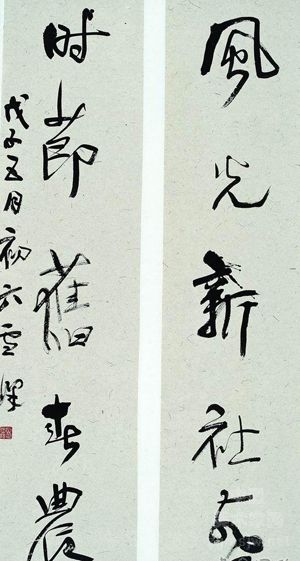 風光新社燕
时節舊春農
戊子五月初六雪